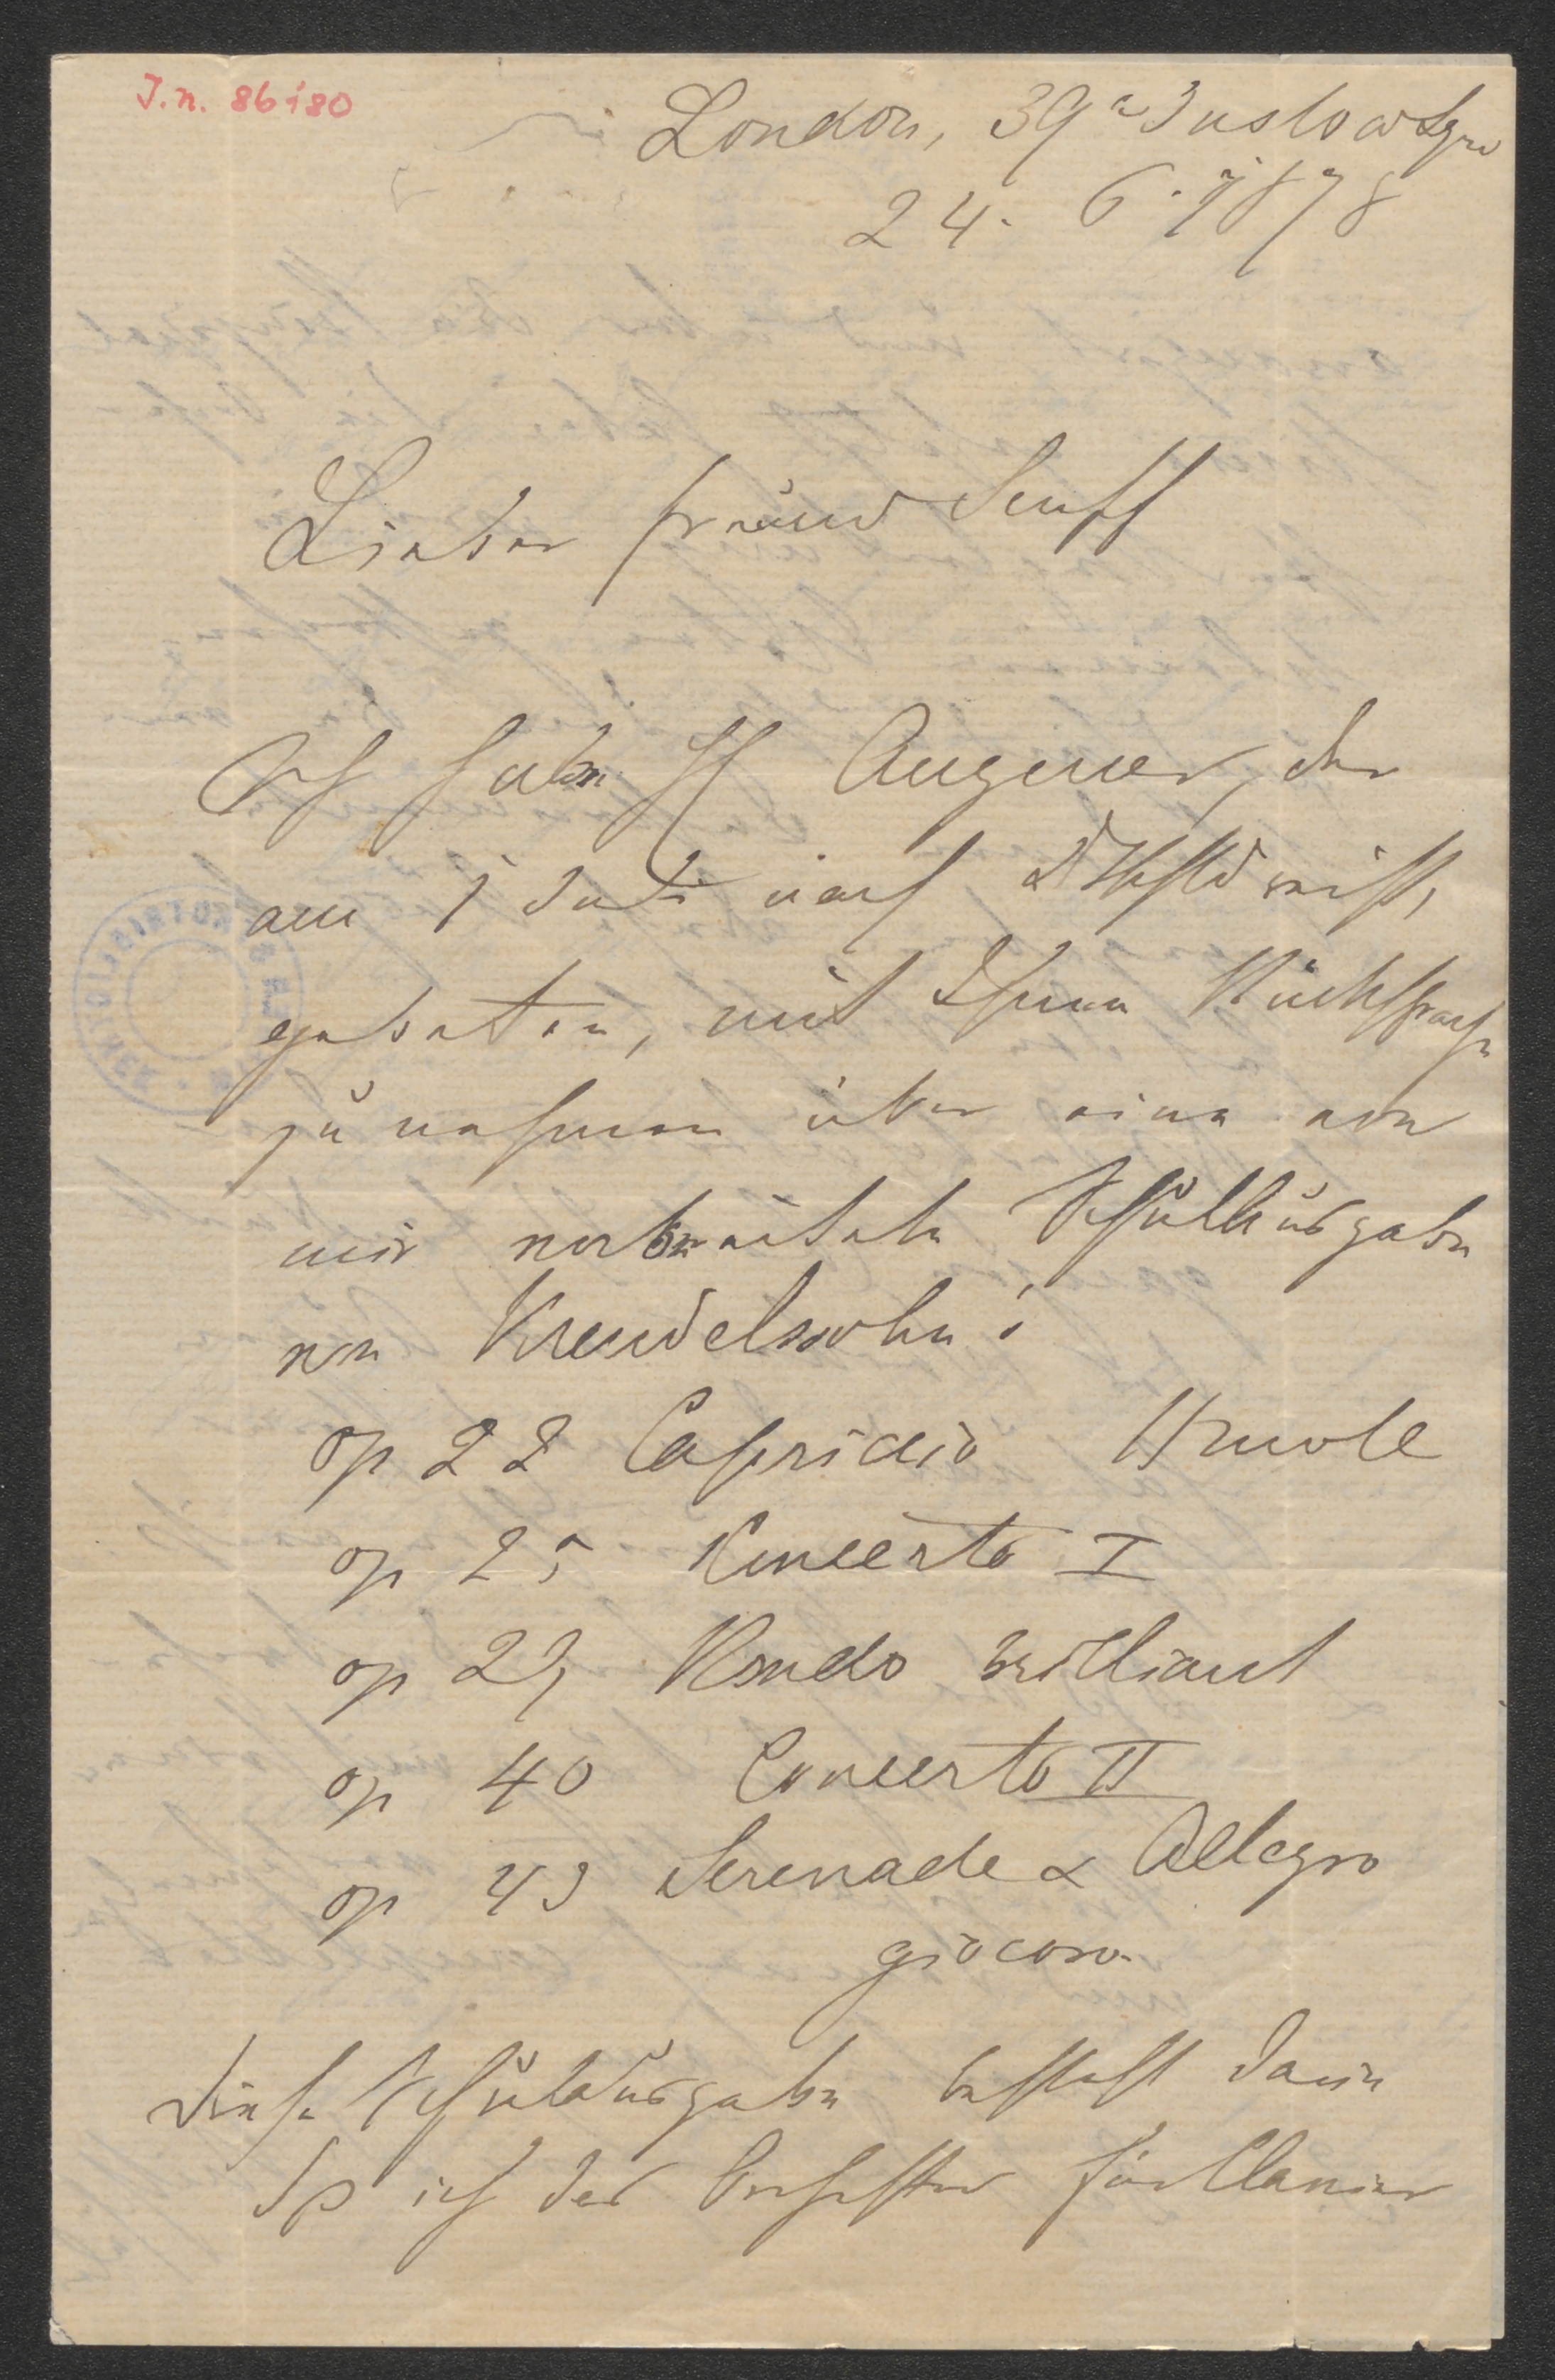 J.n. 86180
London, 39a Onslow Sqre
24. 6. 1878
Lieber Freund Senff
Ich habe H Augener, der
am 1 Juli nach Dtschld reist,
gebeten, mit Ihnen Rücksprache
zu nehmen über eine von
mir verbreitete Schulausgabe
von Mendelssohn's
op 22 Capriccio Hmoll
op 25 Concerto I
op 29 Rondo brilliant
op 40 Concerto II
op 43 Serenade & Allegro
giocoso.
Diese Schulausgabe besteht darin
dß ich das Orchester für Clavier